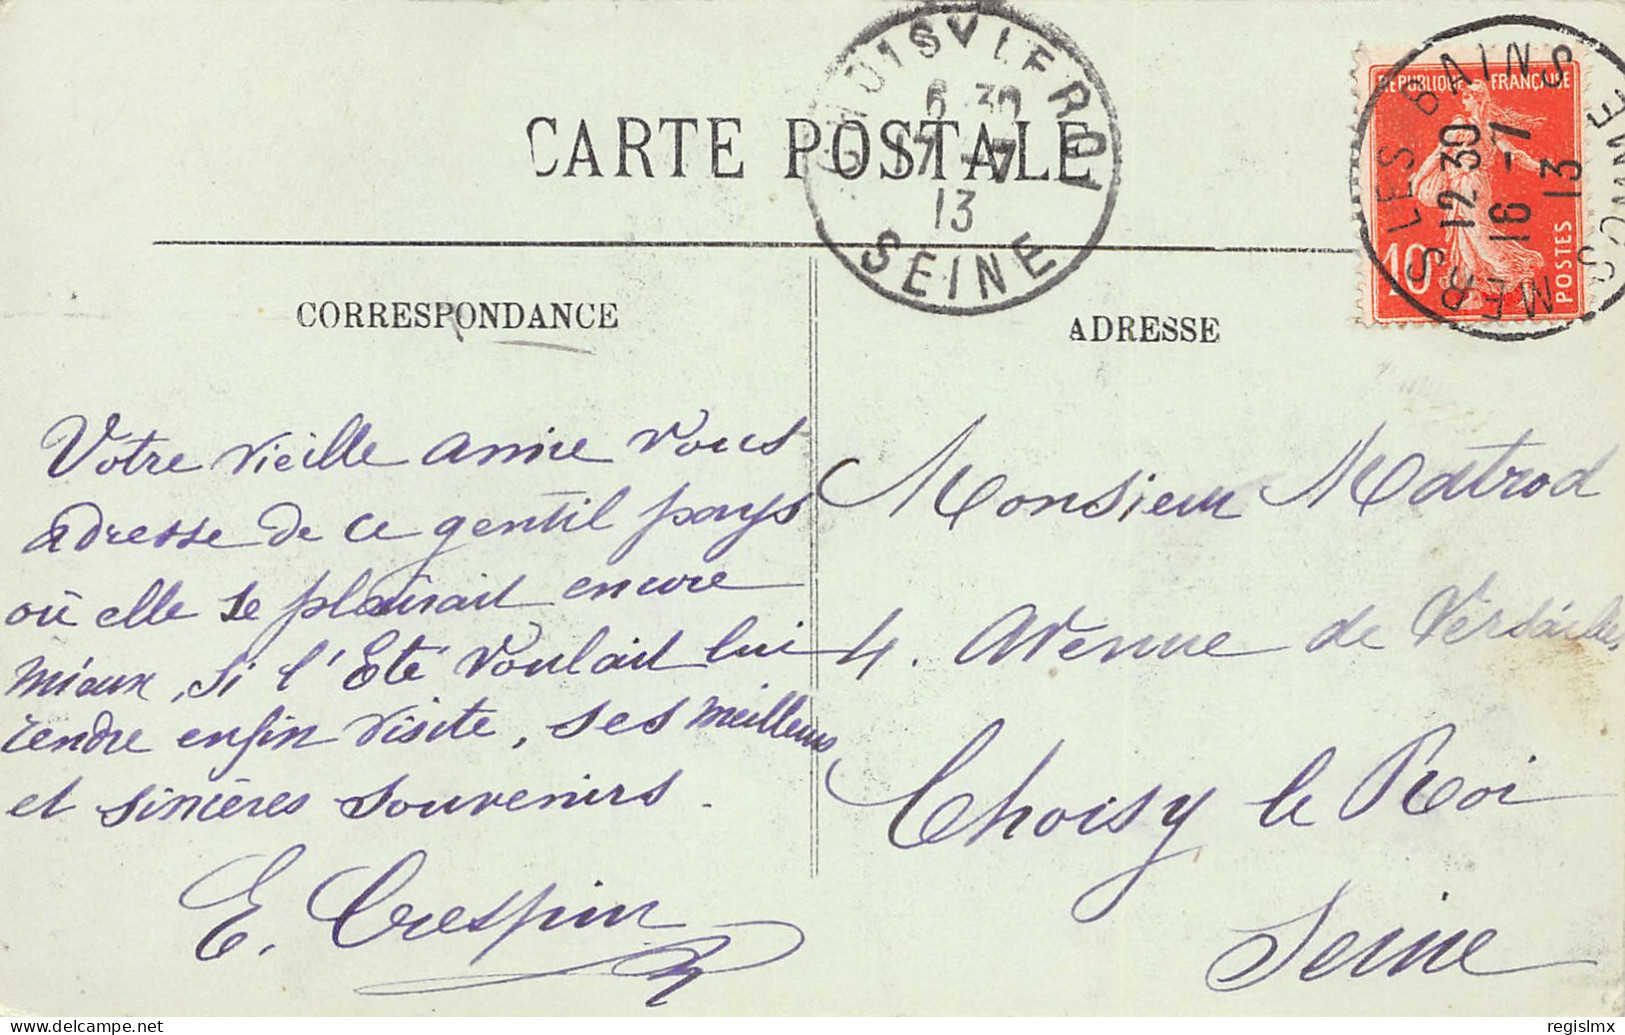 CARTE POSTALE
CHOISY LE ROI
6 30
17 -7
13
SEINE
REPUBLIQUE FRANÇAISE
10c
POSTES
MERS LES BAINS
12 30
16 -7
13
SOMME
CORRESPONDANCE
Votre vieille amie vous
adresse de ce gentil pays
où elle se plairait encore
mieux, si l'Eté voulait lui
rendre enfin visite, ses meilleurs
et sincères souvenirs.
E. Crespin
ADRESSE
Monsieur Matrod
4. Avenue de Versailles
Choisy le Roi
Seine
www.delcampe.net
regislmx